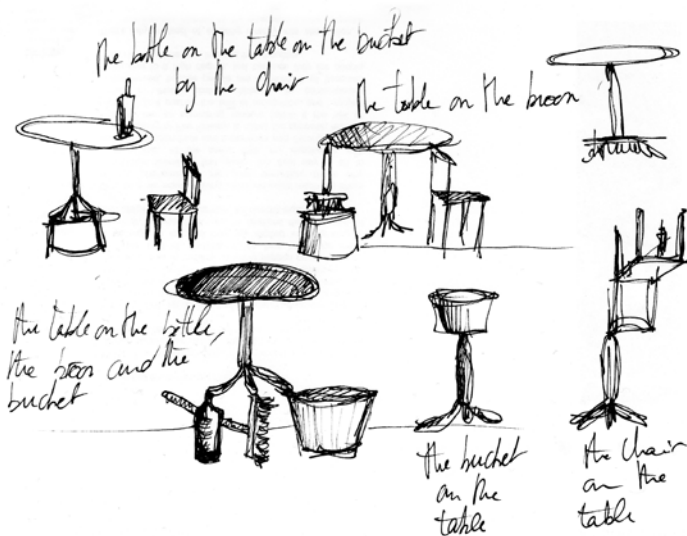 the bottle on the table on the bucket
by the chair
the table on the broom
the table on the bottle,
the broom and the
bucket
the bucket
on the
table
the chair
on the
table